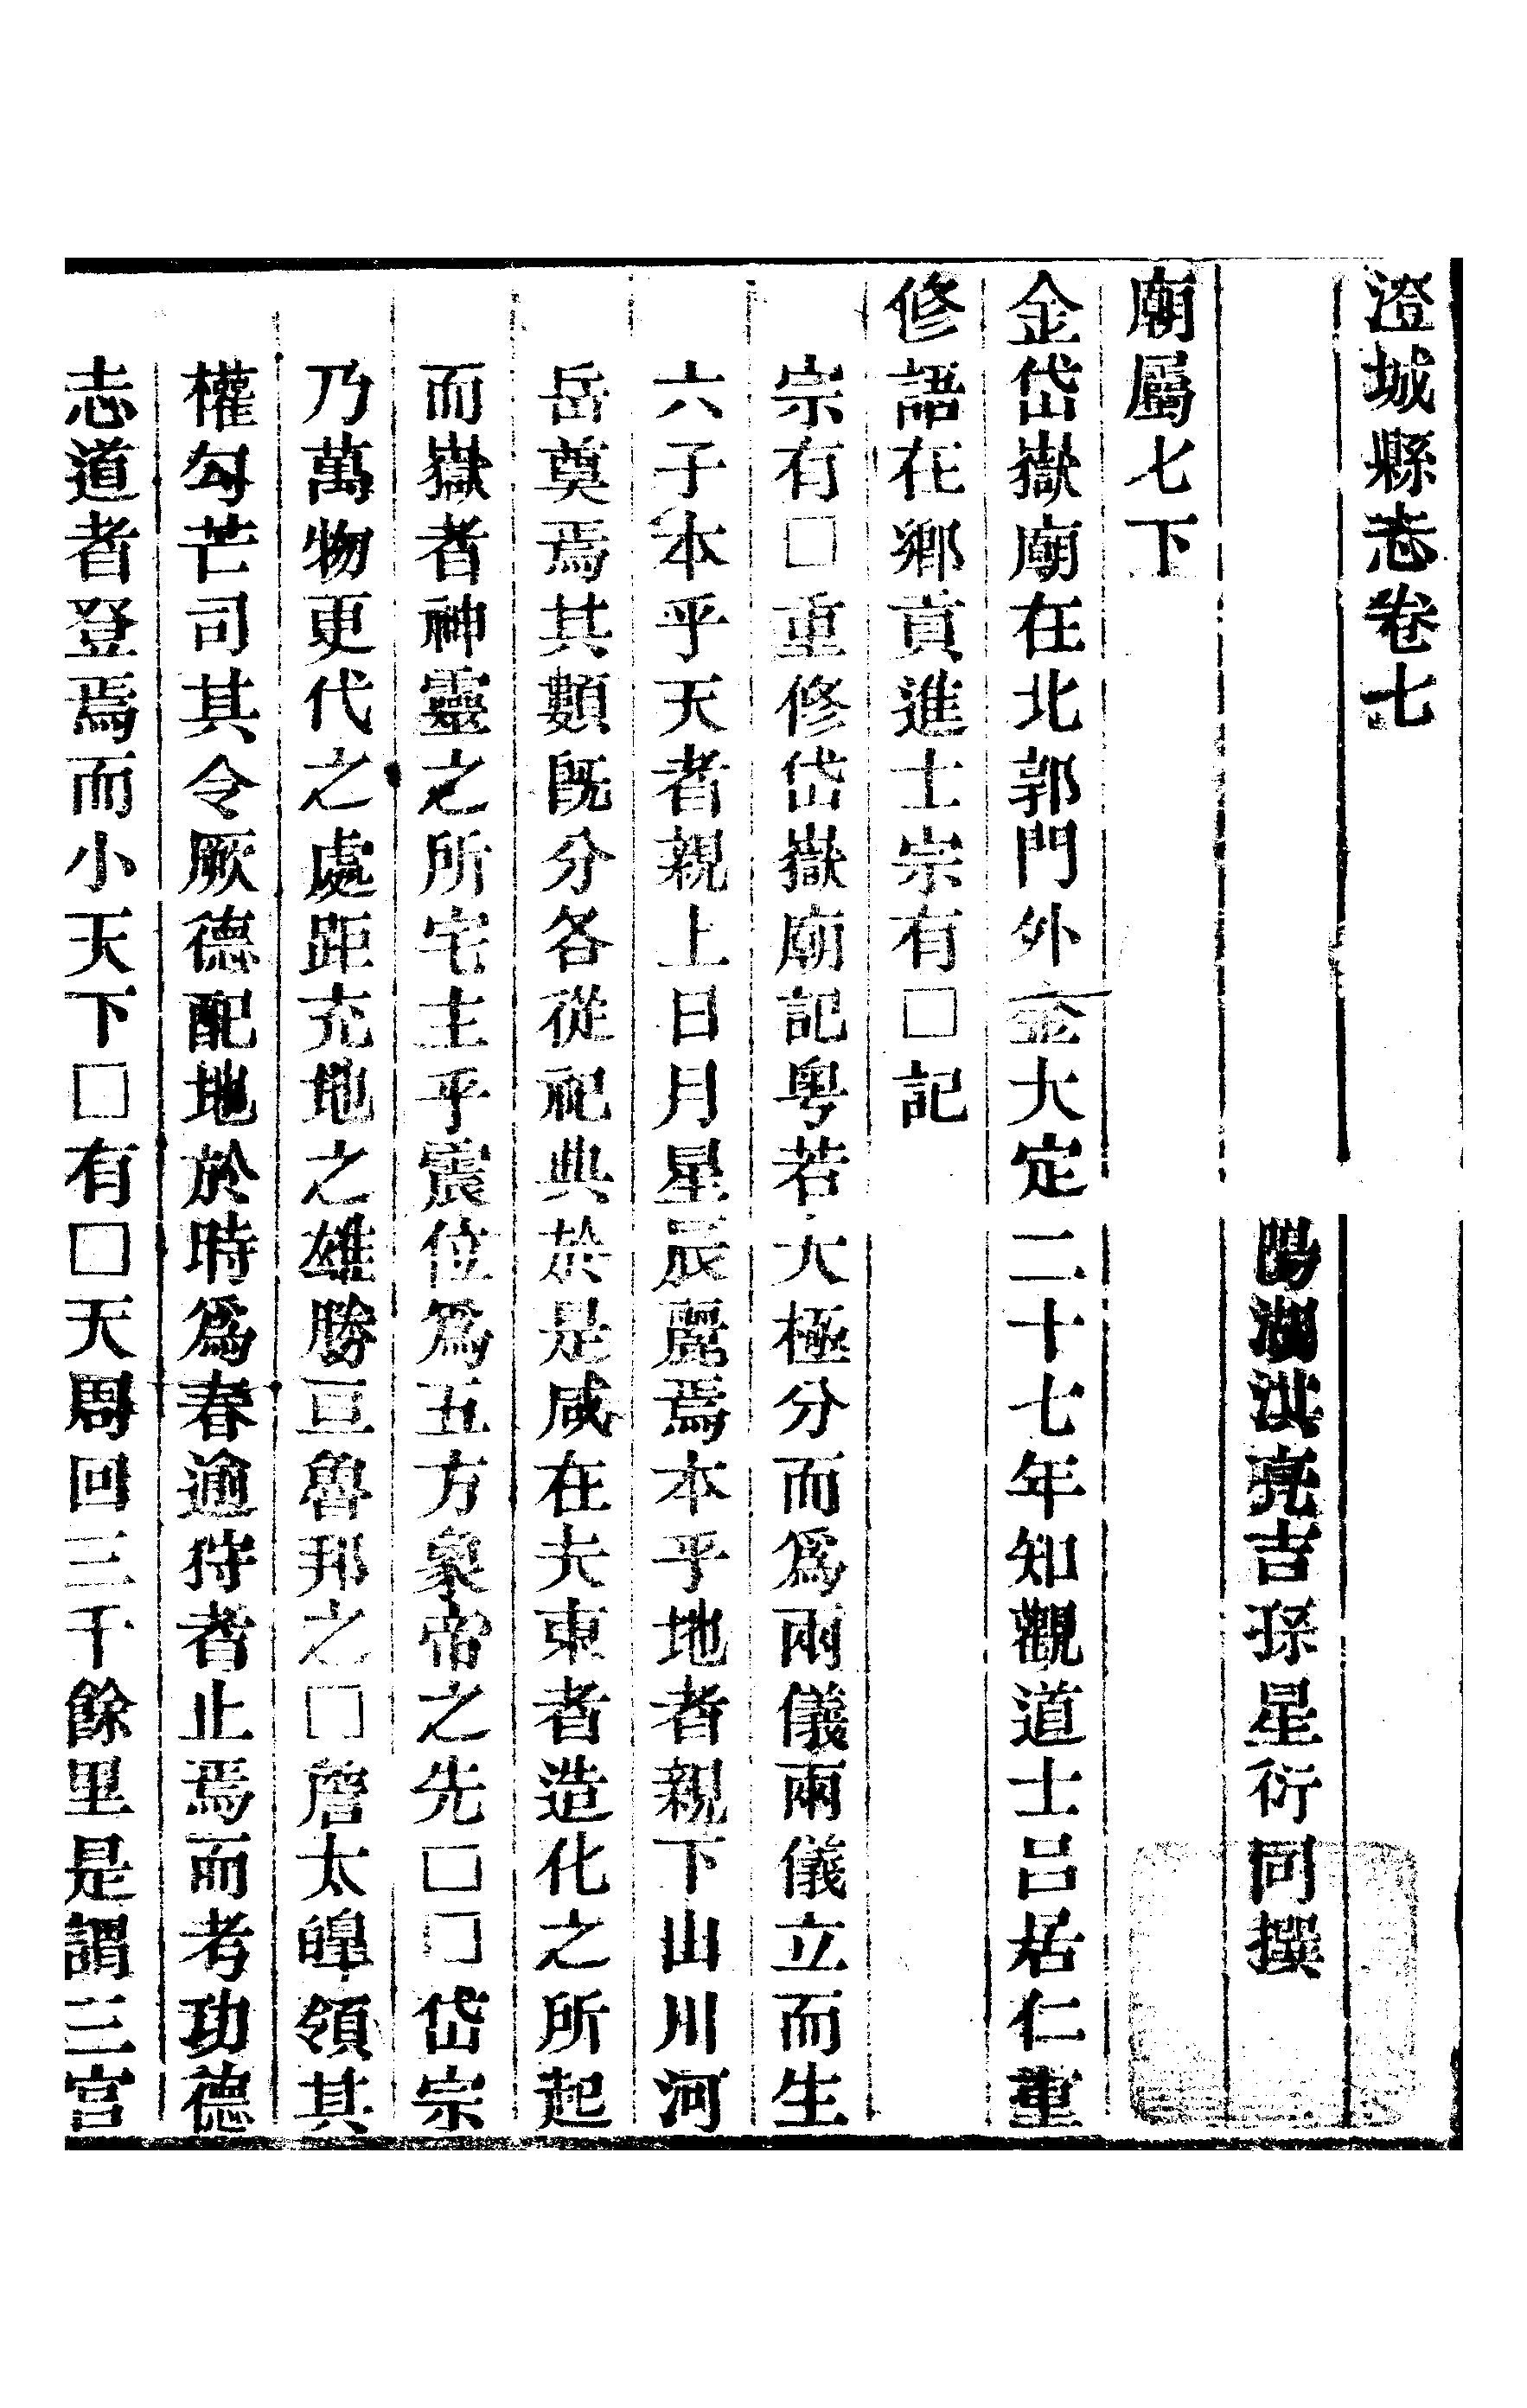 澄城縣志卷七
陽湖洪亮吉孫星衍同撰
廟屬七下
金岱嶽廟在北郭門外金大定二十七年知觀道士吕居仁重
修語在鄉貢進士宗有□記
宗有□重修岱嶽廟記粤若大極分而爲兩儀兩儀立而生
六子本乎天者親上日月星辰麗焉本乎地者親下山川河
岳奠焉其類既分各從祀典於是咸在夫東者造化之所起
而嶽者神靈之所宅主乎震位爲五方象帝之先□□岱宗
乃萬物更代之處距充地之雄勝亘魯邦之□詹太皡領其
權勾芒司其令厥德配地於時爲春逾狩者止焉而考功德
志道者登焉而小天下□有□天周回三千餘里是謂三宫